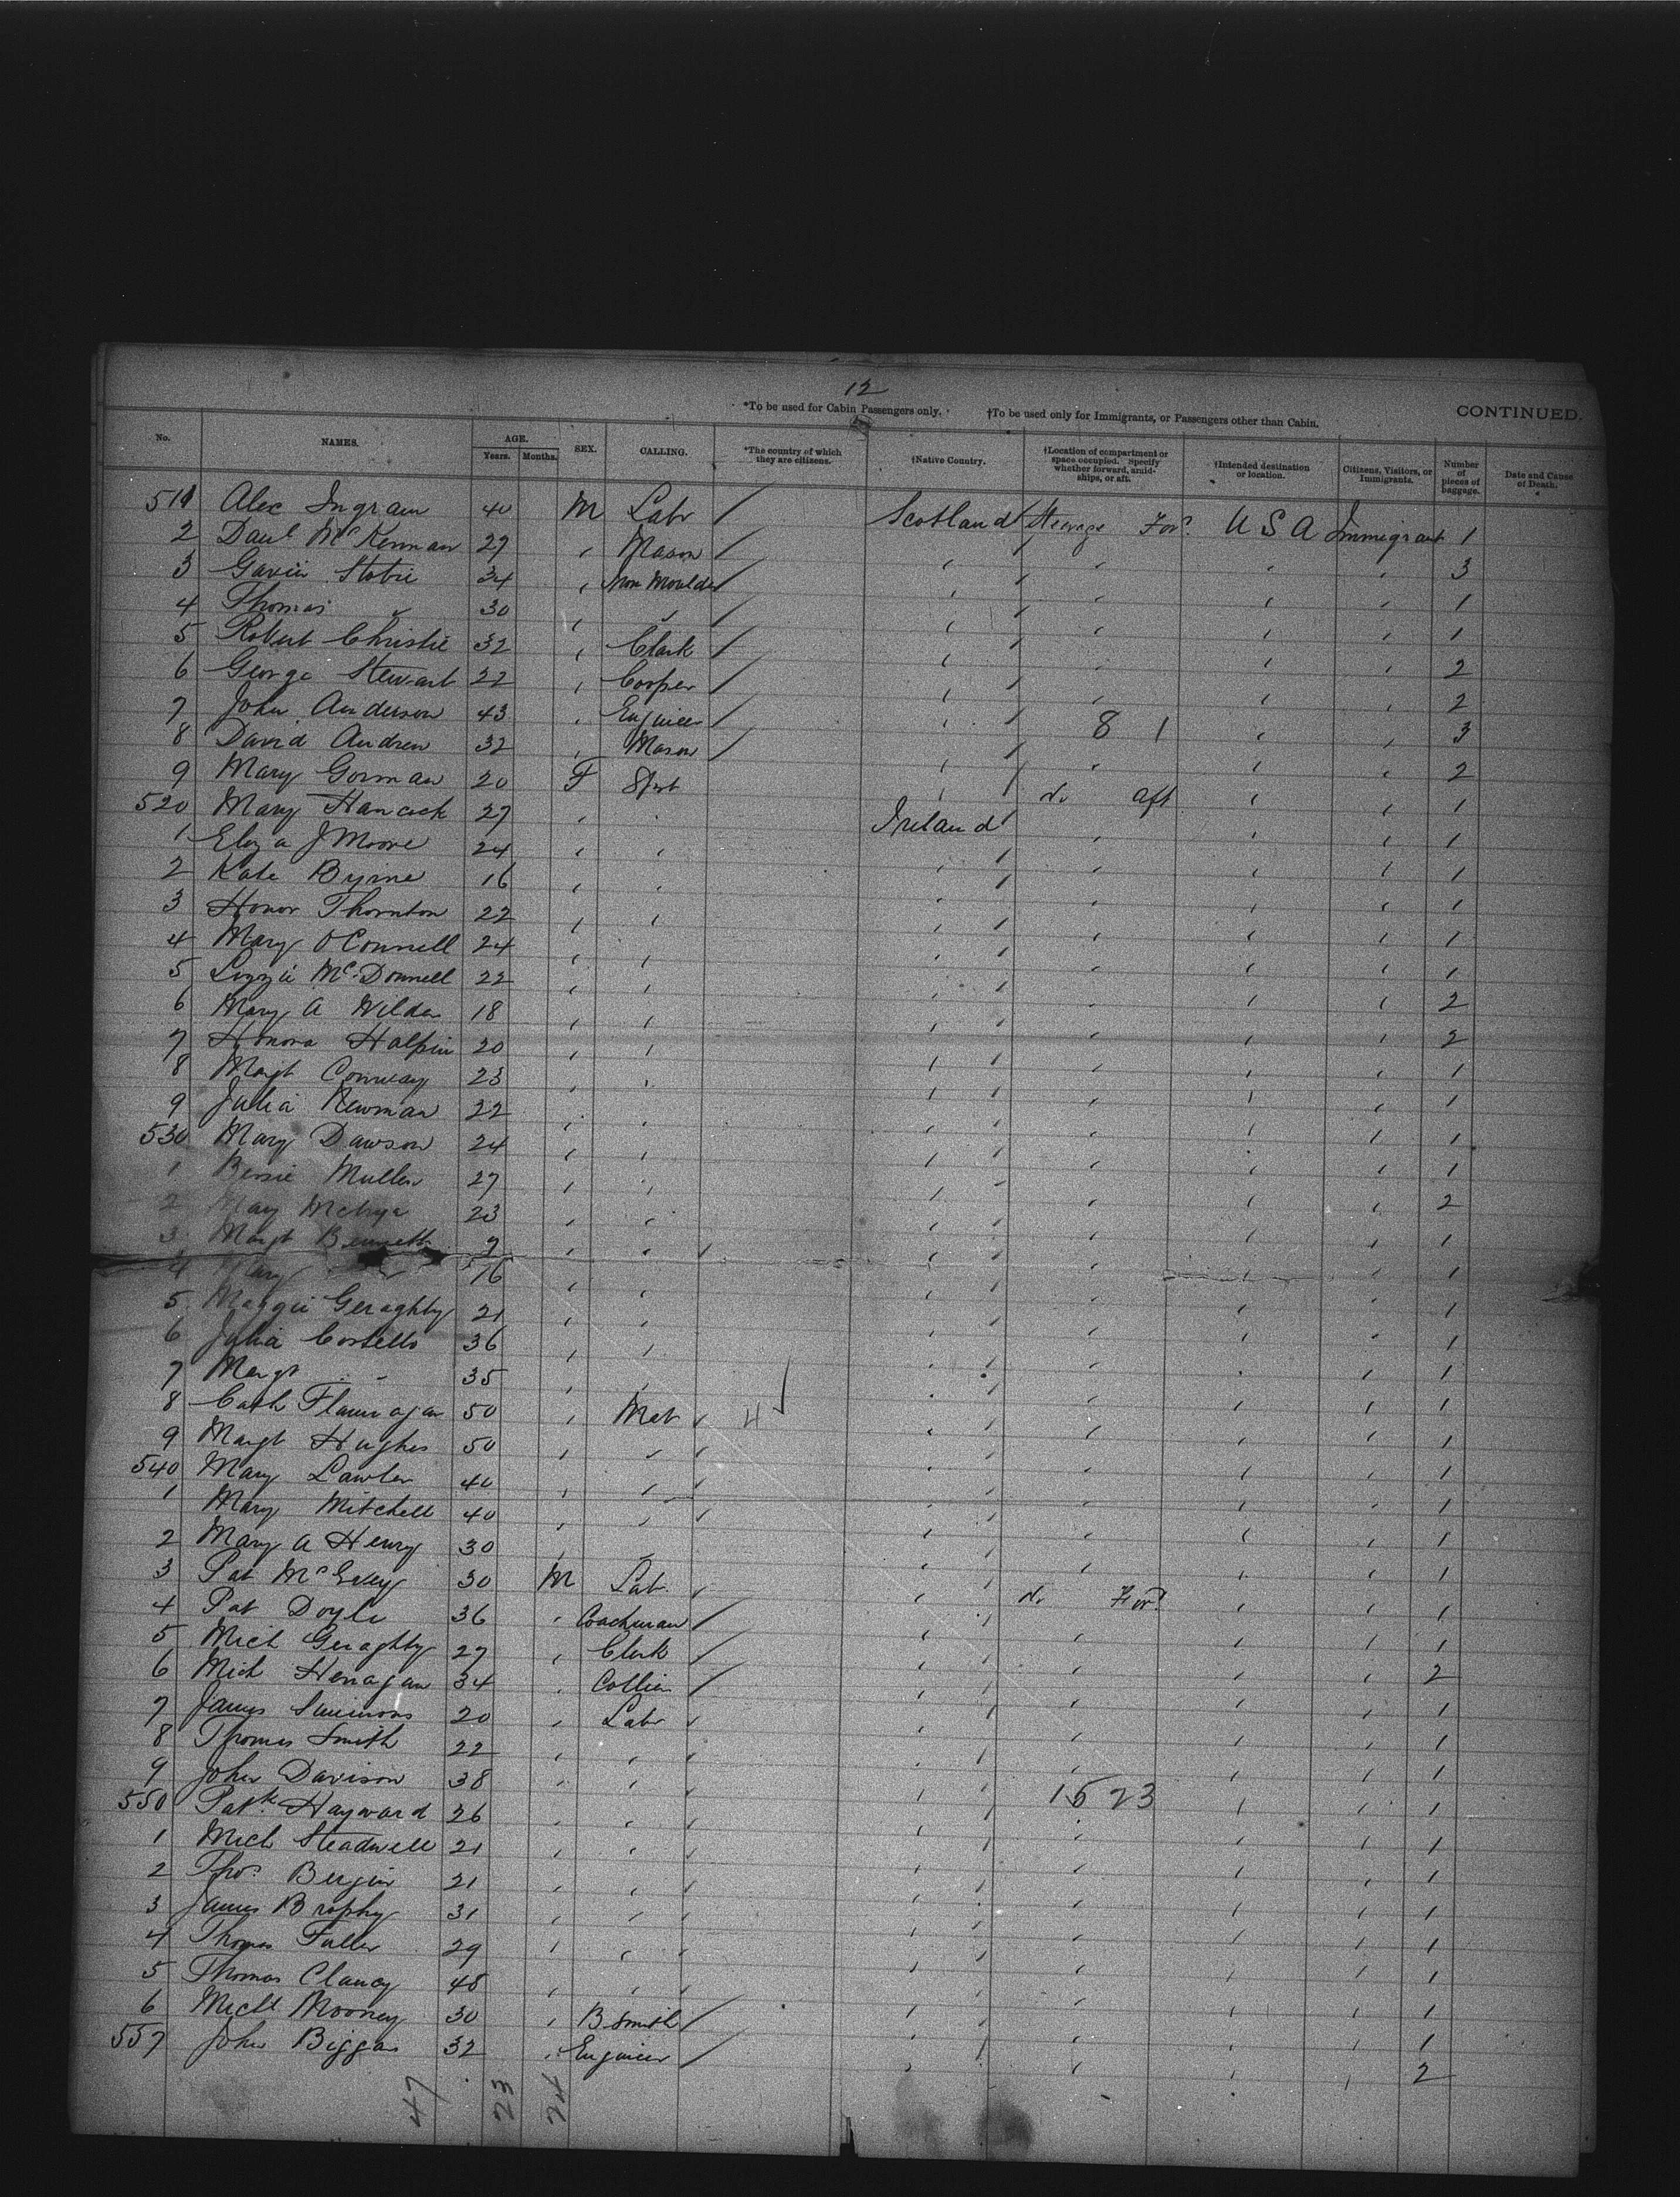 12
*To be used for Cabin Passengers only. †To be used only for Immigrants, or Passengers other than Cabin. CONTINUED.
No. NAMES. AGE. Years. Months. SEX. CALLING. *The country of which they are citizens. †Native Country. †Location of compartment or space occupied. Specify whether forward, amidships, or aft. †Intended destination or location. Citizens, Visitors, or Immigrants. Number of pieces of baggage. Date and Cause of Death.
511 Alex Ingram 40 M Labr / Scotland Steerage For? U S A Immigrant 1
2 Danl McKennan 27 " Mason / " " " " 3
3 Gavin Stobie 34 " Iron Moulder / " " " " 1
4 Thomas " 30 " " / " " " " 1
5 Robert Christie 32 " Clark / " " " " 2
6 George Stewart 22 " Cooper / " " " " 2
7 John Anderson 43 " Engineer / " 8 1 " " 3
8 David Andrew 32 " Mason / " " " " 2
9 Mary Gorman 20 F Spst " do aft " " 1
520 Mary Hancock 27 " " Ireland " " " 1
1 Eliza J Moore 24 " " " " " " 1
2 Kate Byrne 16 " " " " " " 1
3 Honor Thornton 22 " " " " " " 1
4 Mary O'Connell 24 " " " " " " 1
5 Lizzie McDonnell 22 " " " " " " 2
6 Mary A Wilden 18 " " " " " " 2
7 Honora Halpin 20 " " " " " " 1
8 Margt Conway 23 " " " " " " 1
9 Julia Newman 22 " " " " " " 1
530 Mary Dawson 24 " " " " " " 1
1 Bessie Mullen 27 " " " " " " 2
2 Mary 23 " " " " " " 1
3 Margt Bennett 7 " " " " " " 1
4 Mary " 16 " " " " " " 1
5 Maggie Geraghty 21 " " " " " " 1
6 Julia Costello 36 " " " " " " 1
7 Margt " 35 " " " " " " 1
8 Cath Flannagan 50 " Mat 4 " " " " 1
9 Margt Hughes 50 " " " " " " 1
540 Mary Lawler 40 " " " " " " 1
1 Mary Mitchell 40 " " " " " " 1
2 Mary A Henry 30 " " " " " " 1
3 Pat McEvey 30 M Lab " do For? " " 1
4 Pat Doyle 36 " Coachman / " " " " 1
5 Mich Geraghty 27 " Clerk / " " " " 2
6 Mich Henagan 34 " Collier / " " " " 1
7 James Simmons 20 " Labr " " " " 1
8 Thomas Smith 22 " " " " " " 1
9 John Davison 38 " " " 15 23 " " 1
550 Patk Hayward 26 " " " " " " 1
1 Mich Steadwell 21 " " " " " " 1
2 Thos Bergin 21 " " " " " " 1
3 James Brophy 31 " " " " " " 1
4 Thomas Fuller 29 " " " " " " 1
5 Thomas Clancy 48 " " " " " " 1
6 Michl Mooney 30 " B Smith / " " " " 1
557 John Biggar 32 " Engineer / " " " " 2
47 23 24